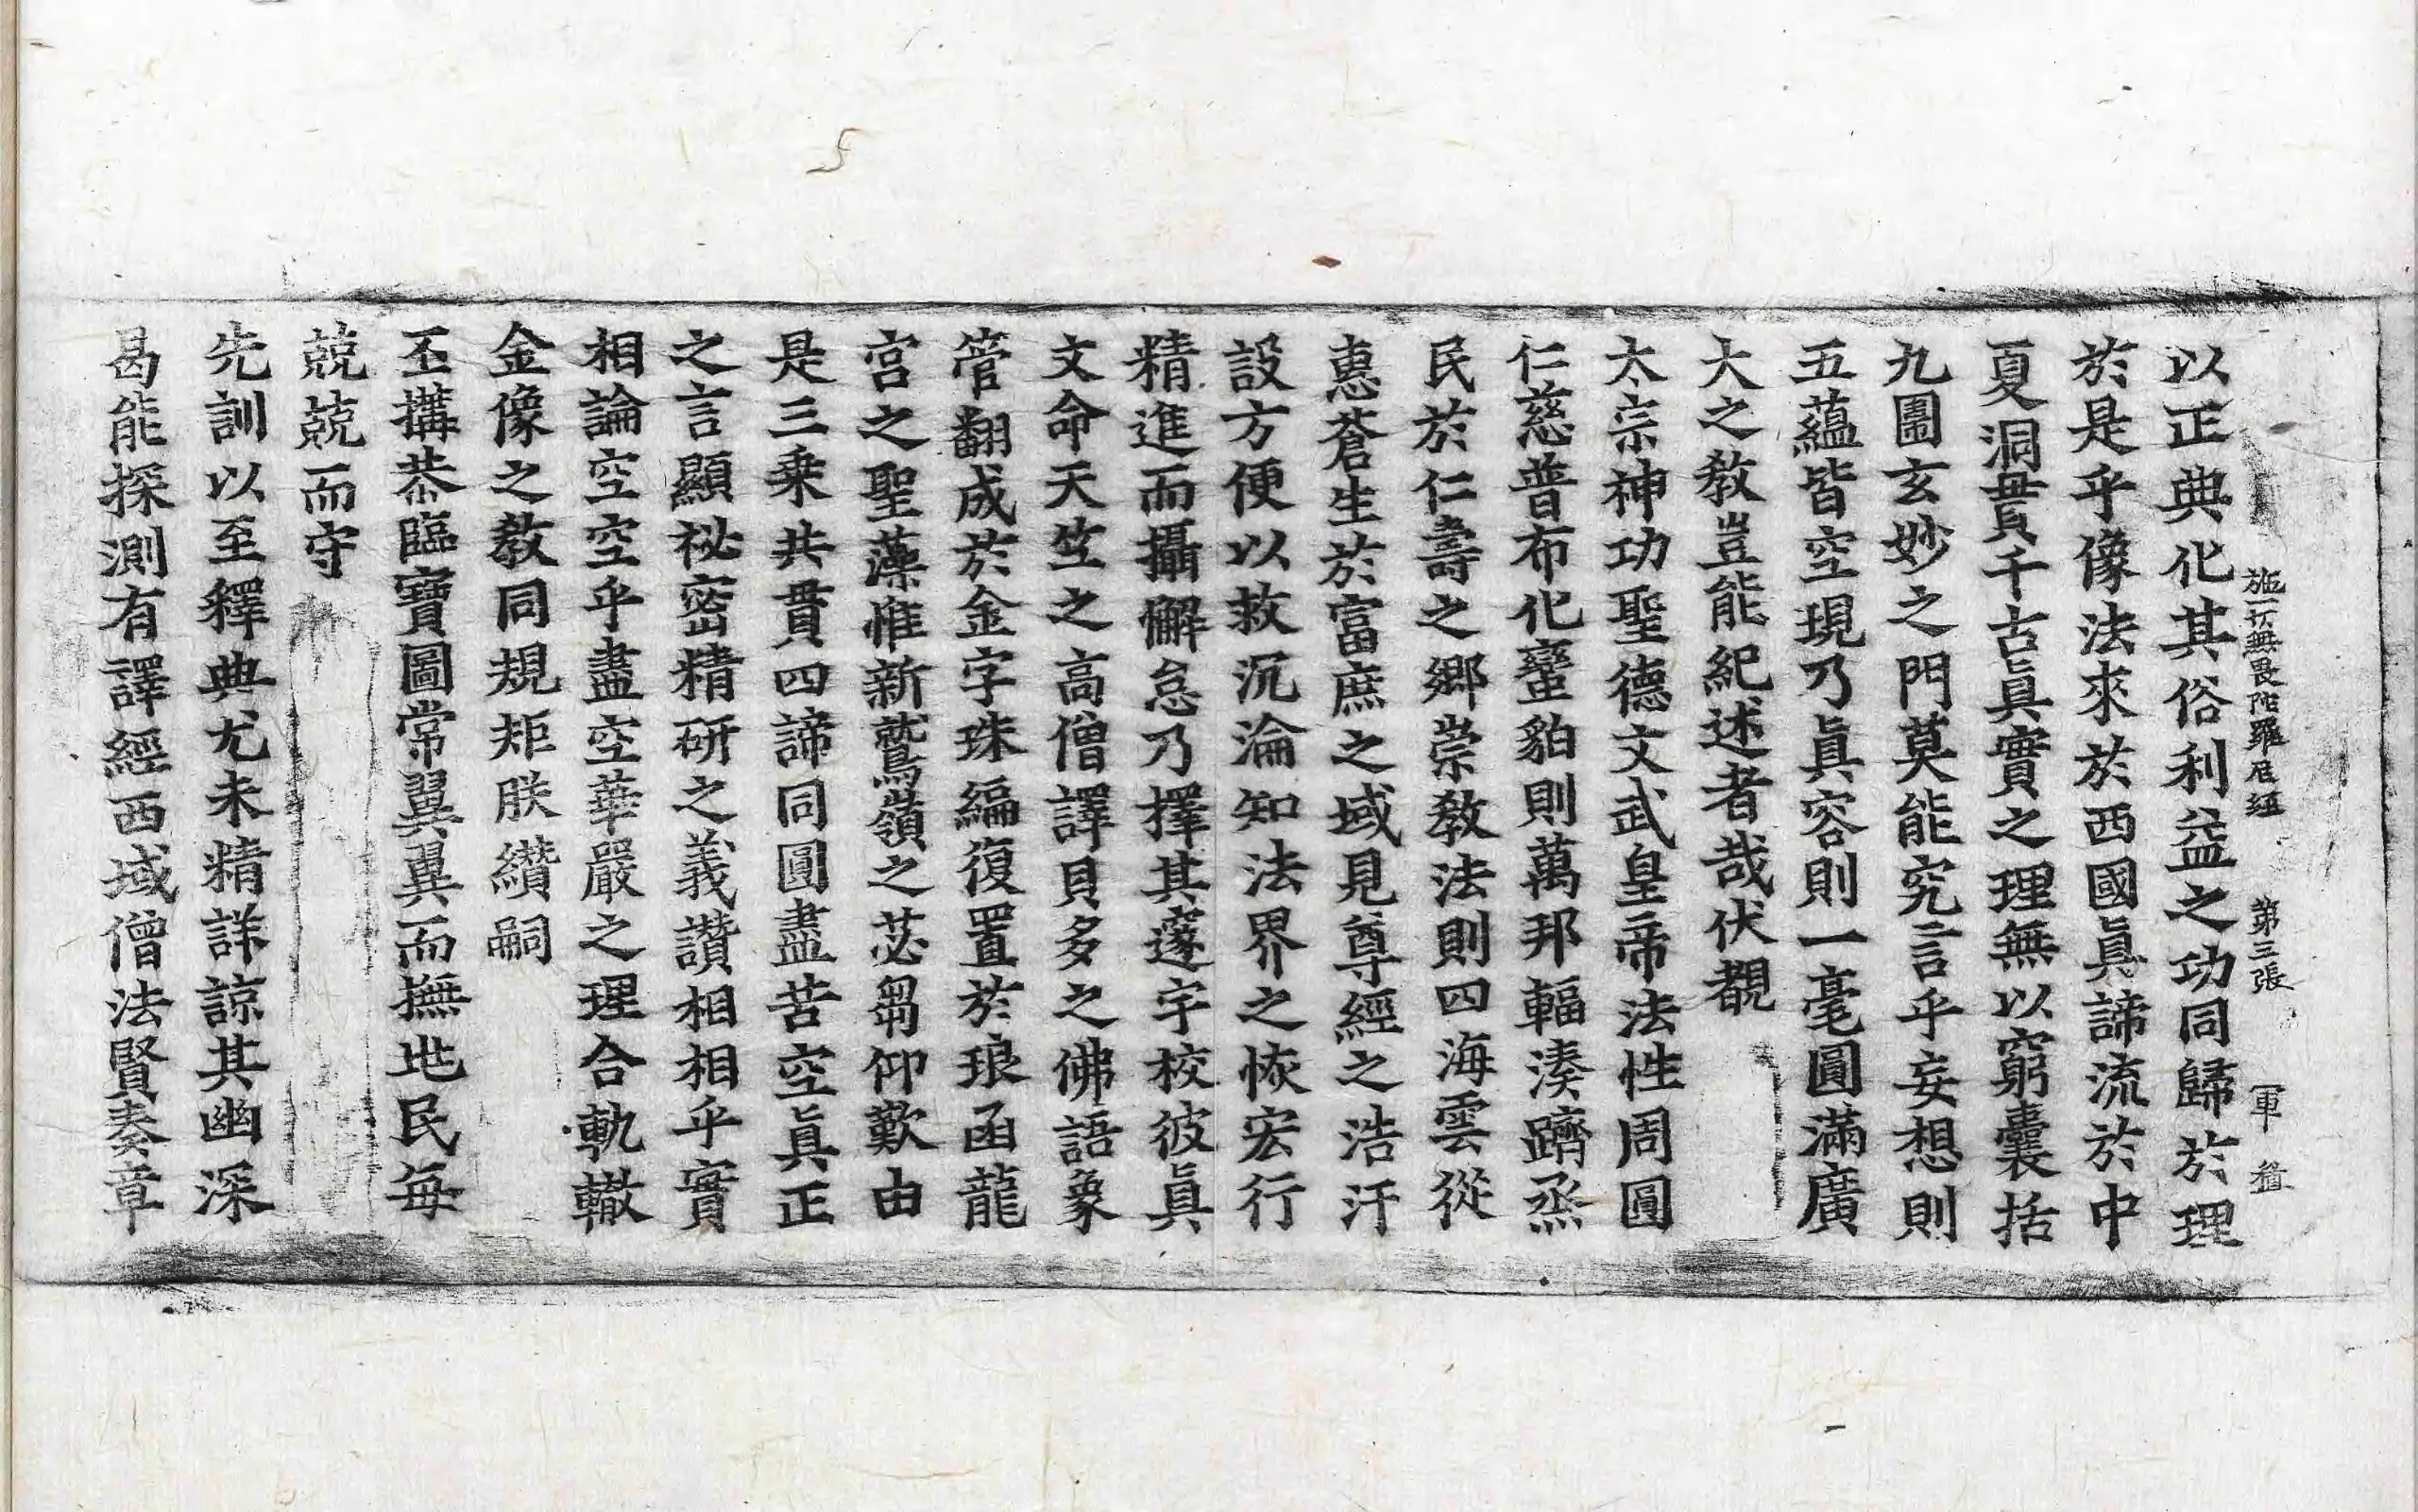 施一切無畏陀羅尼經 第三張 軍
以正典化其俗利益之功同歸於理
於是乎像法來於西國眞諦流於中
夏洞貫千古眞實之理無以窮囊括
九圍玄妙之門莫能究言乎妄想則
五蘊皆空現乃眞容則一毫圓滿廣
大之敎豈能紀述者哉伏覩
太宗神功聖德文武皇帝法性周圓
仁慈普布化蠻貊則萬邦輻湊躋烝
民於仁壽之鄉崇敎法則四海雲從
惠蒼生於富庶之域見尊經之浩汗
設方便以救沉淪知法界之恢宏行
精進而攝懈怠乃擇其邃宇校彼眞
文命天竺之高僧譯貝多之佛語象
管翻成於金字珠編復置於琅函龍
宮之聖藻惟新鷲嶺之苾芻仰歎由
是三乘共貫四諦同圓盡苦空眞正
之言顯祕密精研之義讚相相乎實
相論空空乎盡空華嚴之理合軌轍
金像之敎同規矩朕纘嗣
丕搆恭臨寶圖常翼翼而撫地民每
兢兢而守
先訓以至釋典尤未精詳諒其幽深
曷能探測有譯經西域僧法賢奏章